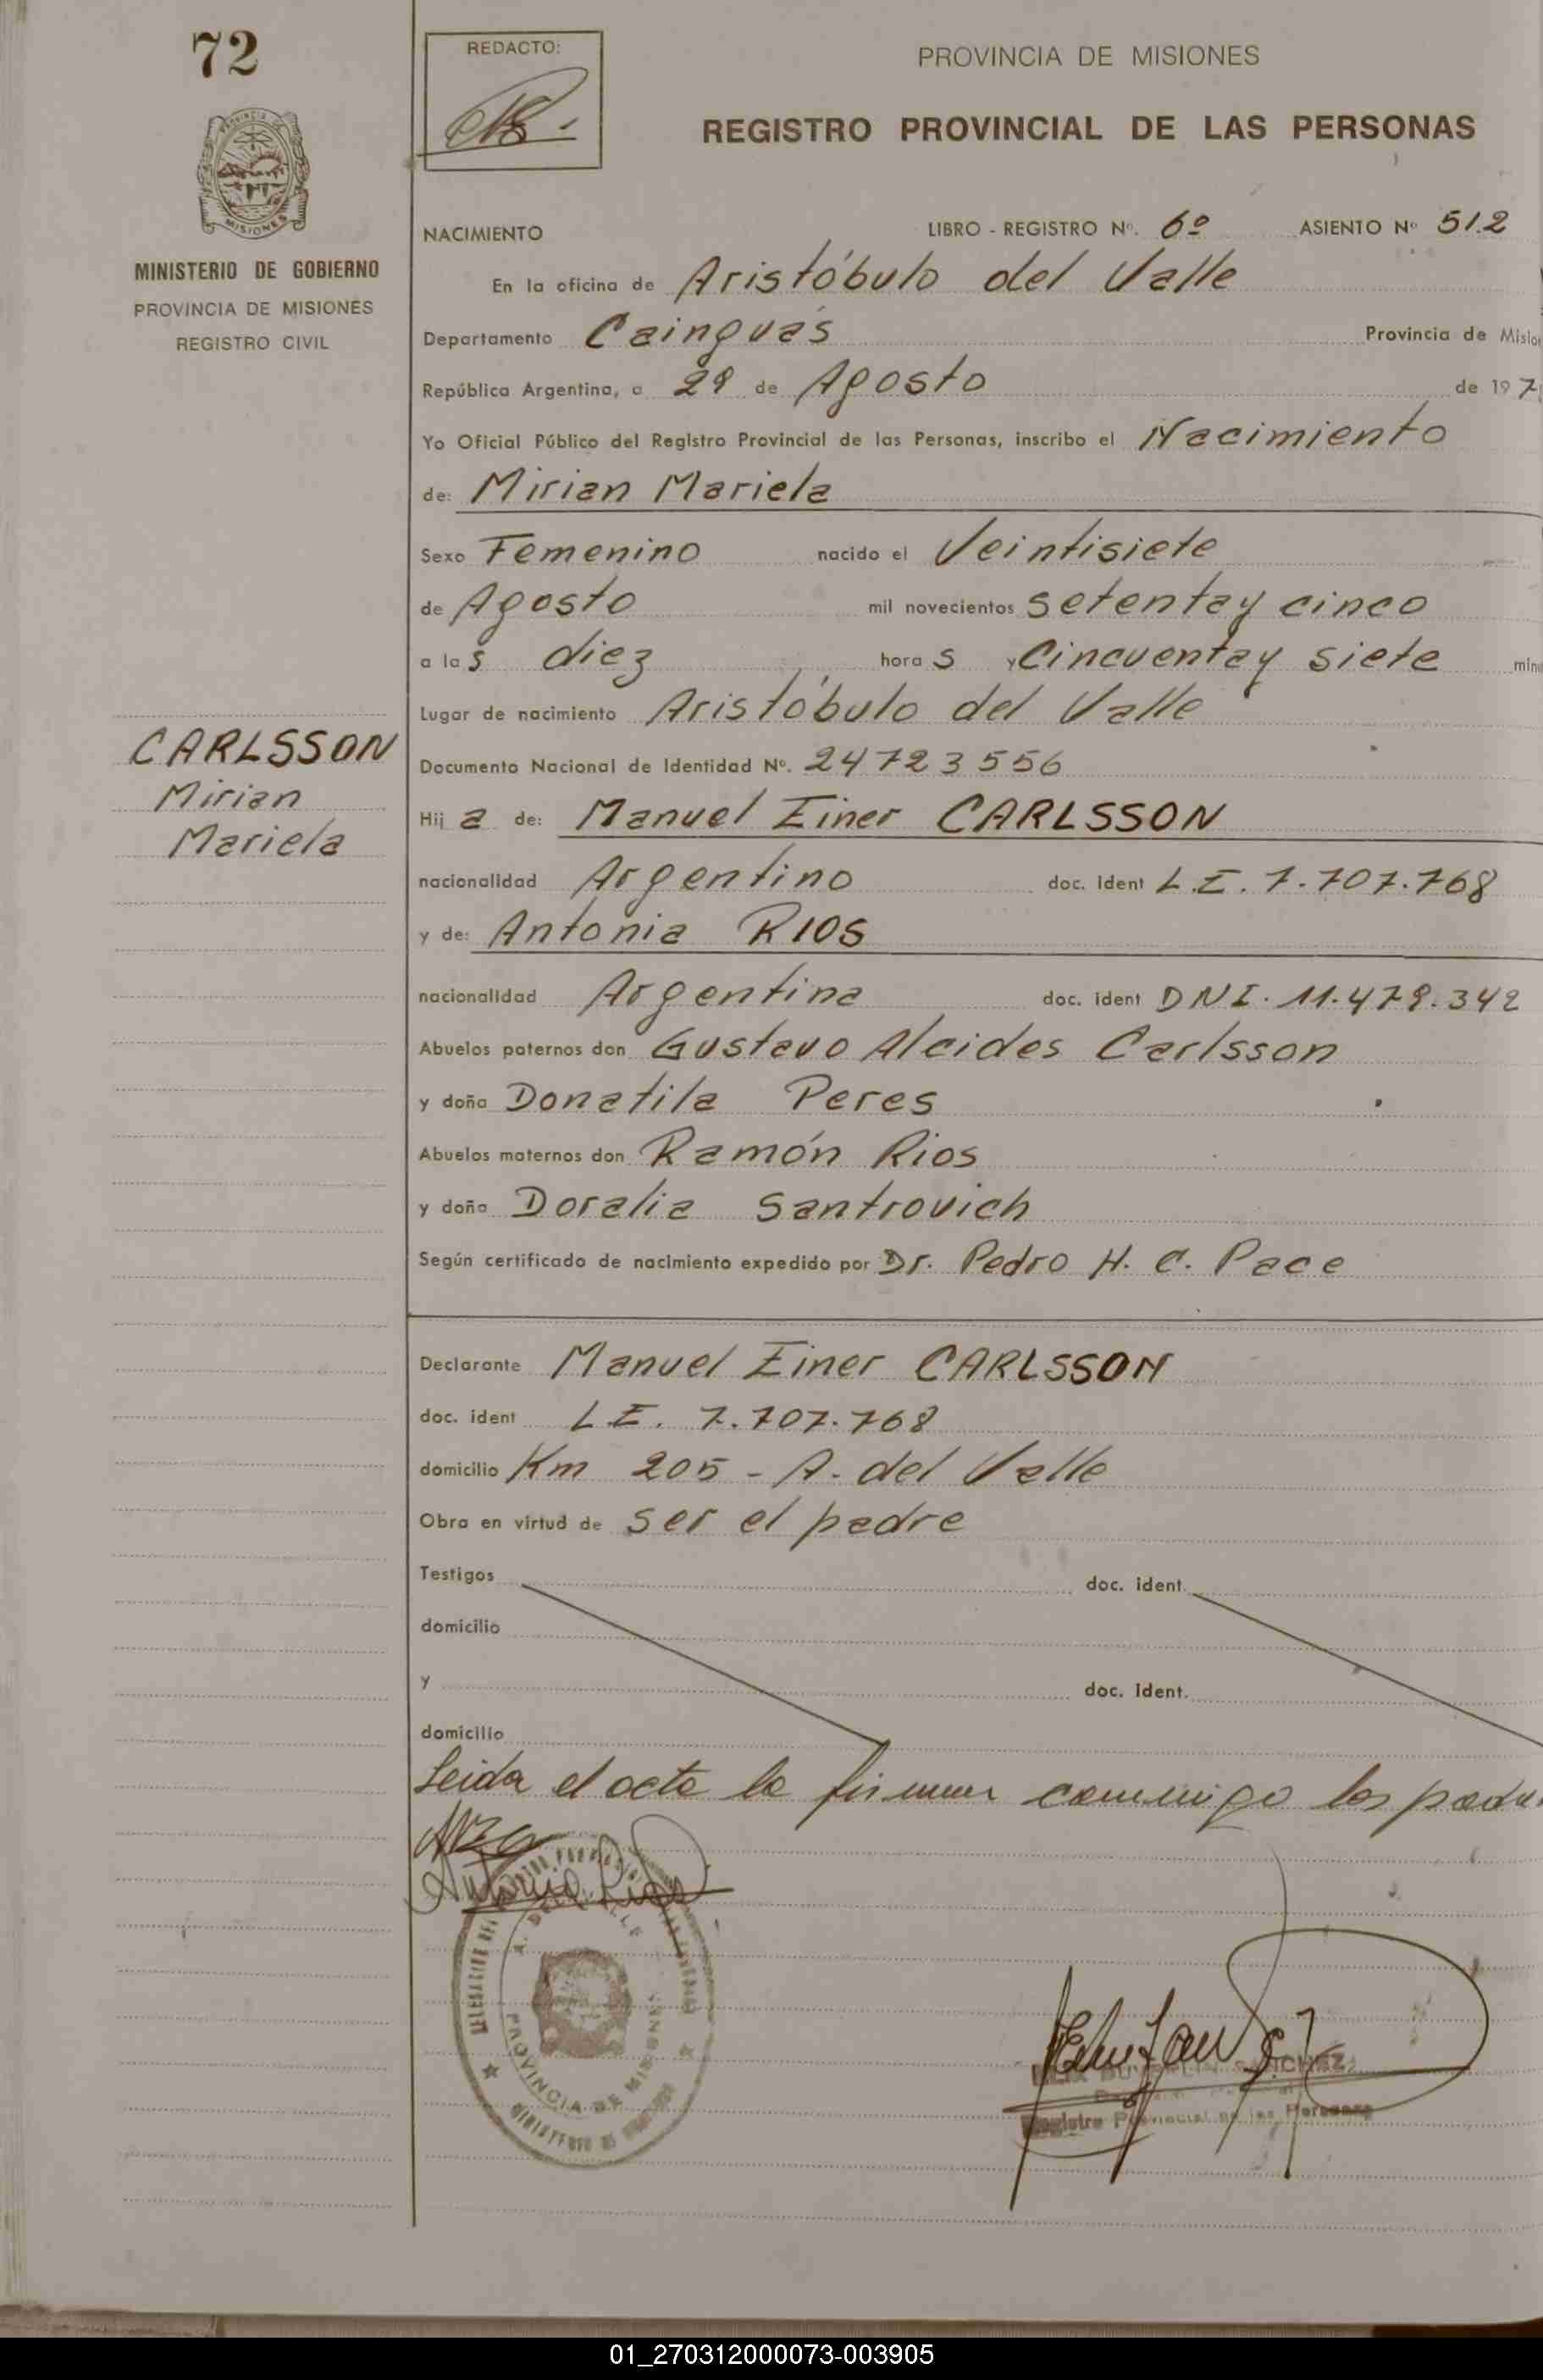 72
REDACTO:
PROVINCIA DE MISIONES
REGISTRO PROVINCIAL DE LAS PERSONAS
MISIONES
MINISTERIO DE GOBIERNO
PROVINCIA DE MISIONES
REGISTRO CIVIL
NACIMIENTO LIBRO - REGISTRO Nº. 6º ASIENTO Nº 512
En la oficina de Aristóbulo del Valle
Departamento Cainguás Provincia de Mision
República Argentina, a 29 de Agosto de 197
Yo Oficial Público del Registro Provincial de las Personas, inscribo el Nacimiento
de: Mirian Mariela
Sexo Femenino nacido el Veintisiete
de Agosto mil novecientos setentay cinco
a las diez horas y Cincuentay siete minu
Lugar de nacimiento Aristóbulo del Valle
CARLSSON
Mirian
Mariela
Documento Nacional de Identidad Nº. 24723556
Hija de: Manuel Einer CARLSSON
nacionalidad Argentino doc. ident L.E. 7.707.768
y de: Antonia RIOS
nacionalidad Argentina doc. ident DNI. 11.479.342
Abuelos paternos don Gustavo Alcides Carlsson
y doña Donatila Peres
Abuelos maternos don Ramón Rios
y doña Doralia Santrovich
Según certificado de nacimiento expedido por Dr. Pedro H. C. Pace
Declarante Manuel Einer CARLSSON
doc. ident L.E. 7.707.768
domicilio Km 205 - A. del Valle
Obra en virtud de ser el padre
Testigos doc. ident.
domicilio
y doc. ident.
domicilio
Leida el acta la firman conmigo los padre
Antonia Rios
PROVINCIA DE MISIONES
SANCHEZ
Registro Provincial de las Personas
01_270312000073-003905